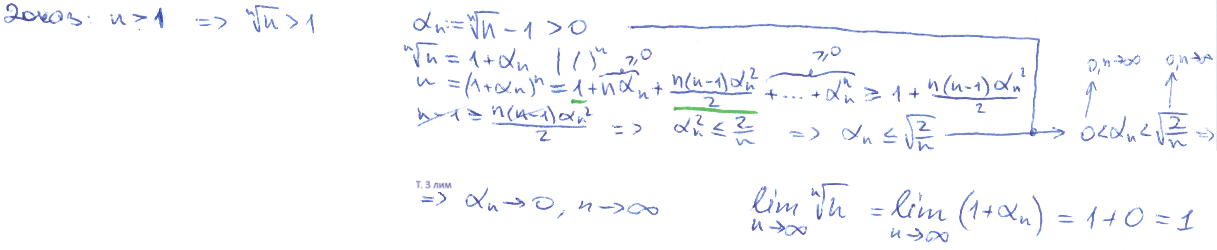 Доказ: n > 1 => ⁿ√n > 1
αₙ := ⁿ√n - 1 > 0
ⁿ√n = 1 + αₙ | ( )ⁿ
≥0 ≥0
0, n→∞ 0, n→∞
n = (1+αₙ)ⁿ = 1 + nαₙ + n(n-1)αₙ²/2 + ... + αₙⁿ ≥ 1 + n(n-1)αₙ²/2
n-1 ≥ n(n-1)αₙ²/2 => αₙ² ≤ 2/n => αₙ ≤ √(2/n) → 0 < αₙ < √(2/n) =>
Т. 3 лим
=> αₙ → 0, n → ∞ lim n→∞ ⁿ√n = lim n→∞ (1+αₙ) = 1+0 = 1